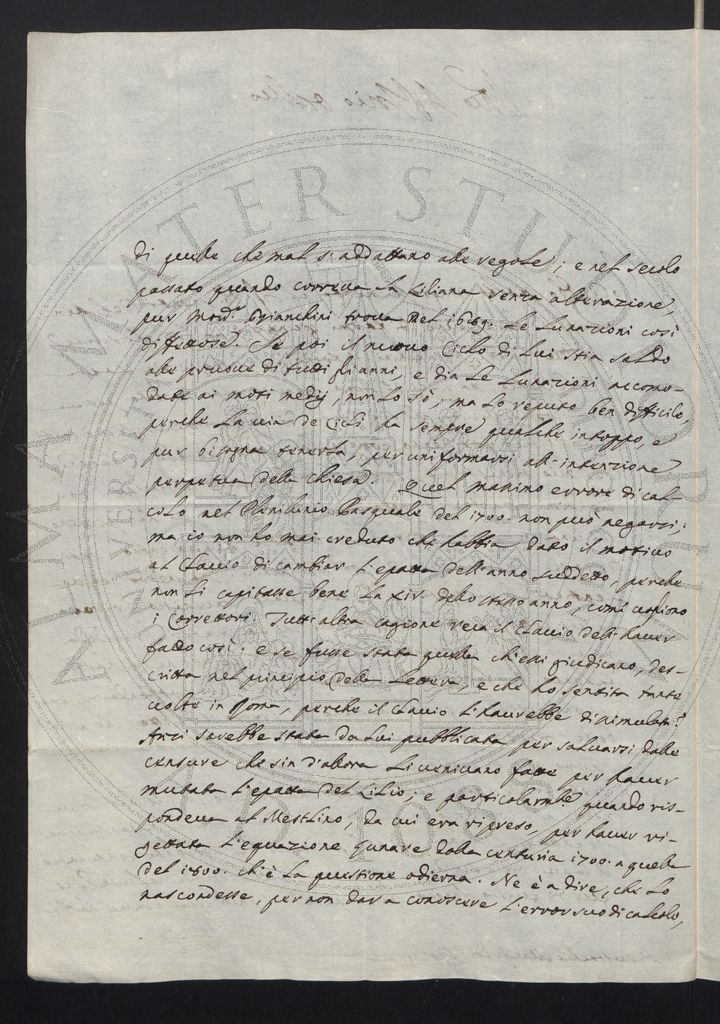 di quelle che mal s'addattano alle regole; e nel secolo
passato quando correva la Liliana senza alterazione,
pur Mons.r Bianchini trova nel 1689. le Lunazioni così
difettose. Se poi il nuovo Ciclo di lui stia saldo
alle pruove di tutti gli anni, e dia le Lunazioni accomo-
date ai moti medij, non lo sò; ma lo reputo ben difficile,
perche la via de Cicli ha sempre qualche intoppo, e
pur bisogna tenerla, per uniformarsi all'intenzione
perpetua della Chiesa. Quel massimo errore di cal-
colo nel Plenilunio Pasquale del 1700. non può negarsi;
ma io non ho mai creduto che habbia dato il motivo
al Clavio di cambiar l'epatta dell'anno suddetto, perche
non li capitasse bene la XIV. dello stesso anno, com'
i Correttori. Tutt'altra cagione reca il Clavio dell'haver
fatto così: e se fusse stata quella ch'essi giudicano, des-
critta nel principio della Lettera, e che ho sentita tante
volte in Roma, perche il Clavio l'haurebbe dissimulata?
Anzi sarebbe stata da lui pubblicata per salvarsi dalle
censure che sin d'allora li venivano fatte per haver
mutata l'epatta del Lilio: e particolarm.te quando ris-
pondeva al Mestlino, da cui era ripreso, per haver ri-
gettata l'equazione lunare dalla centuria 1700. a quella
del 1800. ch'è la questione odierna. Ne è a dire, che lo
nascondesse, per non dar a conoscere l'error suo di calcolo,
ALMA MATER STUDIORUM
UNIVERSITÀ
A.D. 1088